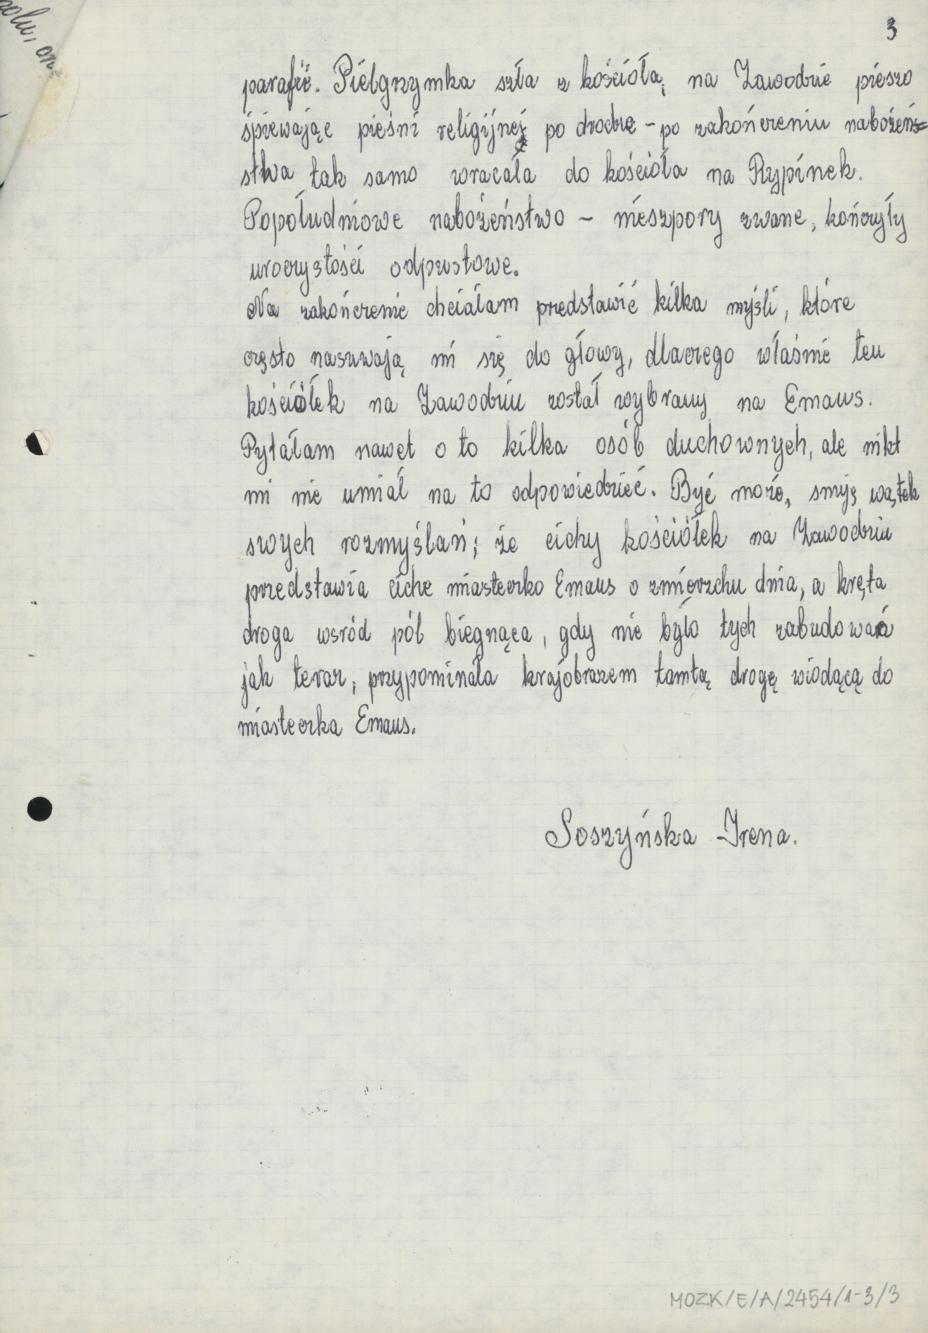 3
parafii. Pielgrzymka szła z kościoła, na Zawodzie pieszo
śpiewając pieśni religijne po drodze - po zakończeniu nabożeń=
stwa tak samo wracała do kościoła na Rypinek.
Popołudniowe nabożeństwo - nieszpory zwane, kończyły
uroczystości odpustowe.
Na zakończenie chciałam przedstawić kilka myśli, które
często nasuwają mi się do głowy, dlaczego właśnie ten
kościółek na Zawodziu został wybrany na Emaus.
Pytałam nawet o to kilka osób duchownych, ale nikt
mi nie umiał na to odpowiedzieć. Być może, snuję wątek
swych rozmyślań; że cichy kościółek na Zawodziu
przedstawia ciche miasteczko Emaus o zmierzchu dnia, a kręta
droga wsród pól biegnąca, gdy nie było tych zabudowań
jak teraz, przypominała krajobrazem tamtą drogę wiodącą do
miasteczka Emaus.
Soszyńska Irena.
MOZK/E/A/2454/1-3/3